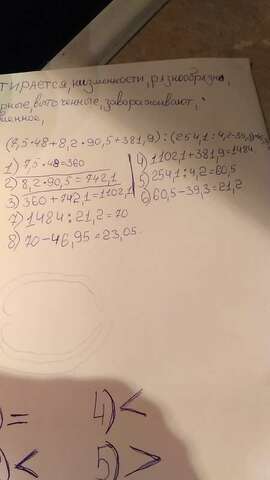 тирается, низменности, разнообразно,
рные, выточенные, завораживают,
менное,
(7,5·48+8,2·90,5+381,9):(254,1:4,2-39,3)-46,95
1) 7,5·48=360
2) 8,2·90,5=742,1
3) 360+742,1=1102,1
4) 1102,1+381,9=1484
5) 254,1:4,2=60,5
6) 60,5-39,3=21,2
7) 1484:21,2=70
8) 70-46,95=23,05.
)= 4)<
)< 5)>